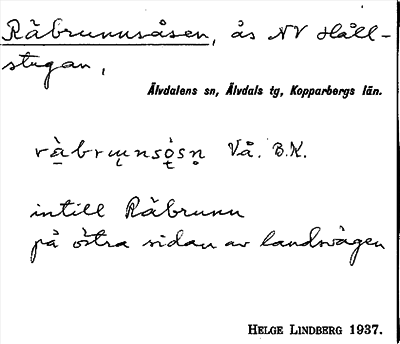 Råbrunnsåsen, ås NV Håll-
stugan,
Älvdalens sn, Älvdals tg, Kopparbergs län.
Vå. B.K.
intill Råbrunn
på östra sidan av landsvägen
HELGE LINDBERG 1937.